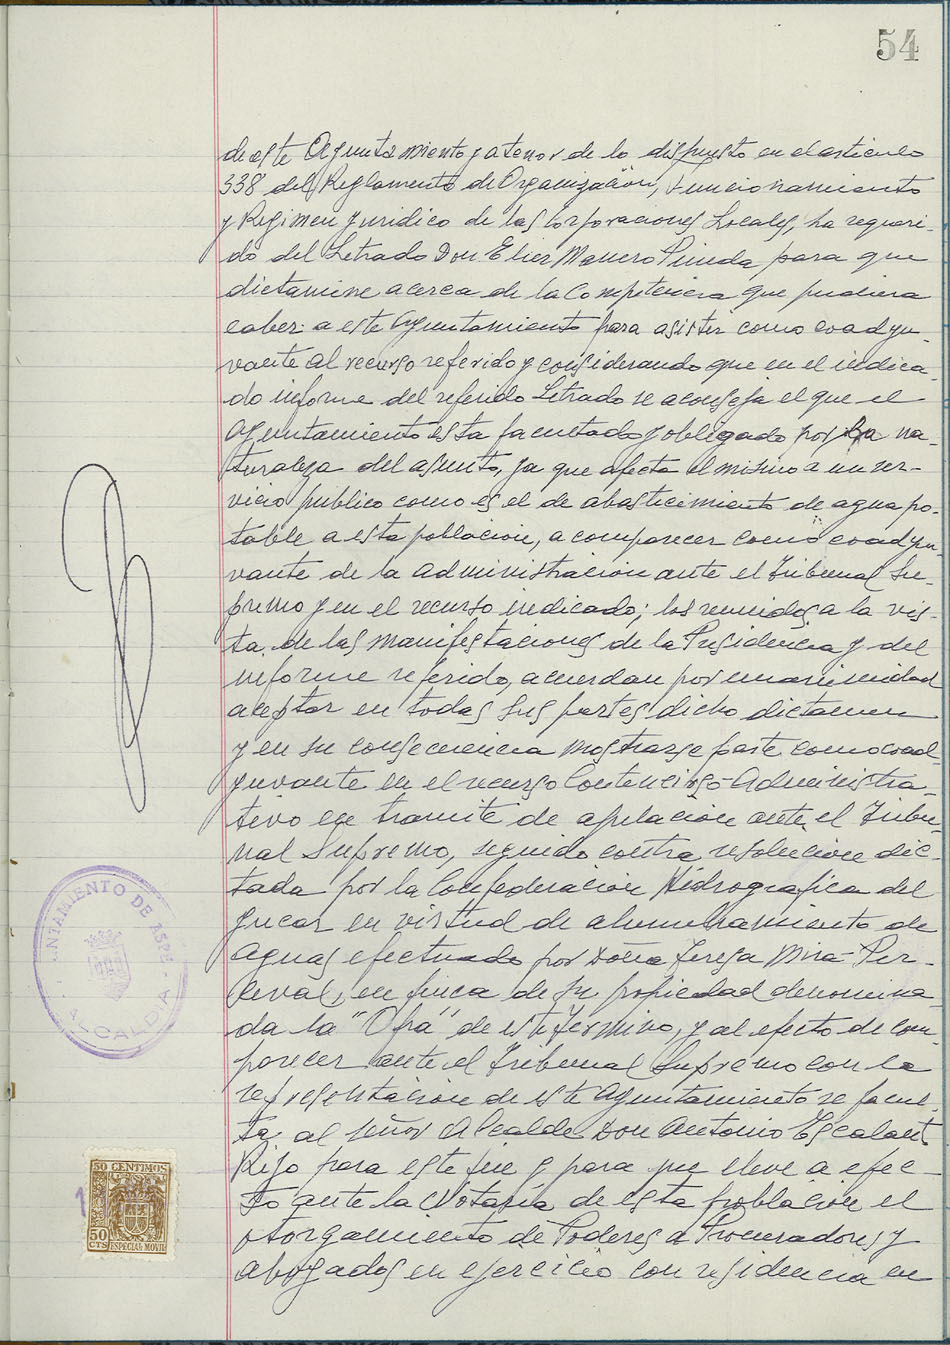 54
de este Ayuntamiento y a tenor de lo dispuesto en el articulo
338 del Reglamento de Organización, Funcionamiento
y Regimen Juridico de las Corporaciones Locales, ha requeri-
do del Letrado Don Elier Manero Pineda para que
dictamine acerca de la Competencia que pudiera
caber a este Ayuntamiento para asistir como coadyu-
vante al recurso referido y considerando que en el indica-
do informe del referido Letrado se aconseja el que el
Ayuntamiento esta facultado y obligado por la na-
turaleza del asunto, ya que afecta el mismo a un ser-
vicio publico como es el de abastecimiento de agua po-
table a esta poblacion, a comparecer como coadyu-
vante de la administracion ante el Tribunal Su-
premo y en el recurso indicado; los reunidos a la vis-
ta de las manifestaciones de la Presidencia y del
informe referido, acuerdan por unanimidad
aceptar en todas sus partes dicho dictamen
y en su consecuencia mostrarse parte como coad-
yuvante en el recurso Contencioso-Administra-
tivo en tramite de apelacion ante el Tribu-
nal Supremo, seguido contra resolucion dic-
tada por la Confederacion Hidrografica del
Jucar en virtud de alumbramiento de
aguas efectuado por Doña Teresa Mira-Per-
ceval, en finca de su propiedad denomina
da la "Ofra" de este Termino, y al efecto de com-
parecer ante el Tribunal Supremo con la
representacion de este Ayuntamiento se facul-
ta al señor Alcalde Don Antonio Escalant
Rizo para este fin y para que lleve a efec-
to ante la Notaria de esta poblacion el
otorgamiento de Poderes a Procuradores y
abogados en ejercicio con residencia en
NTAMIENTO DE ASPE
ALCALDIA
50 CENTIMOS
50
CTS
ESPECIAL MOVIL